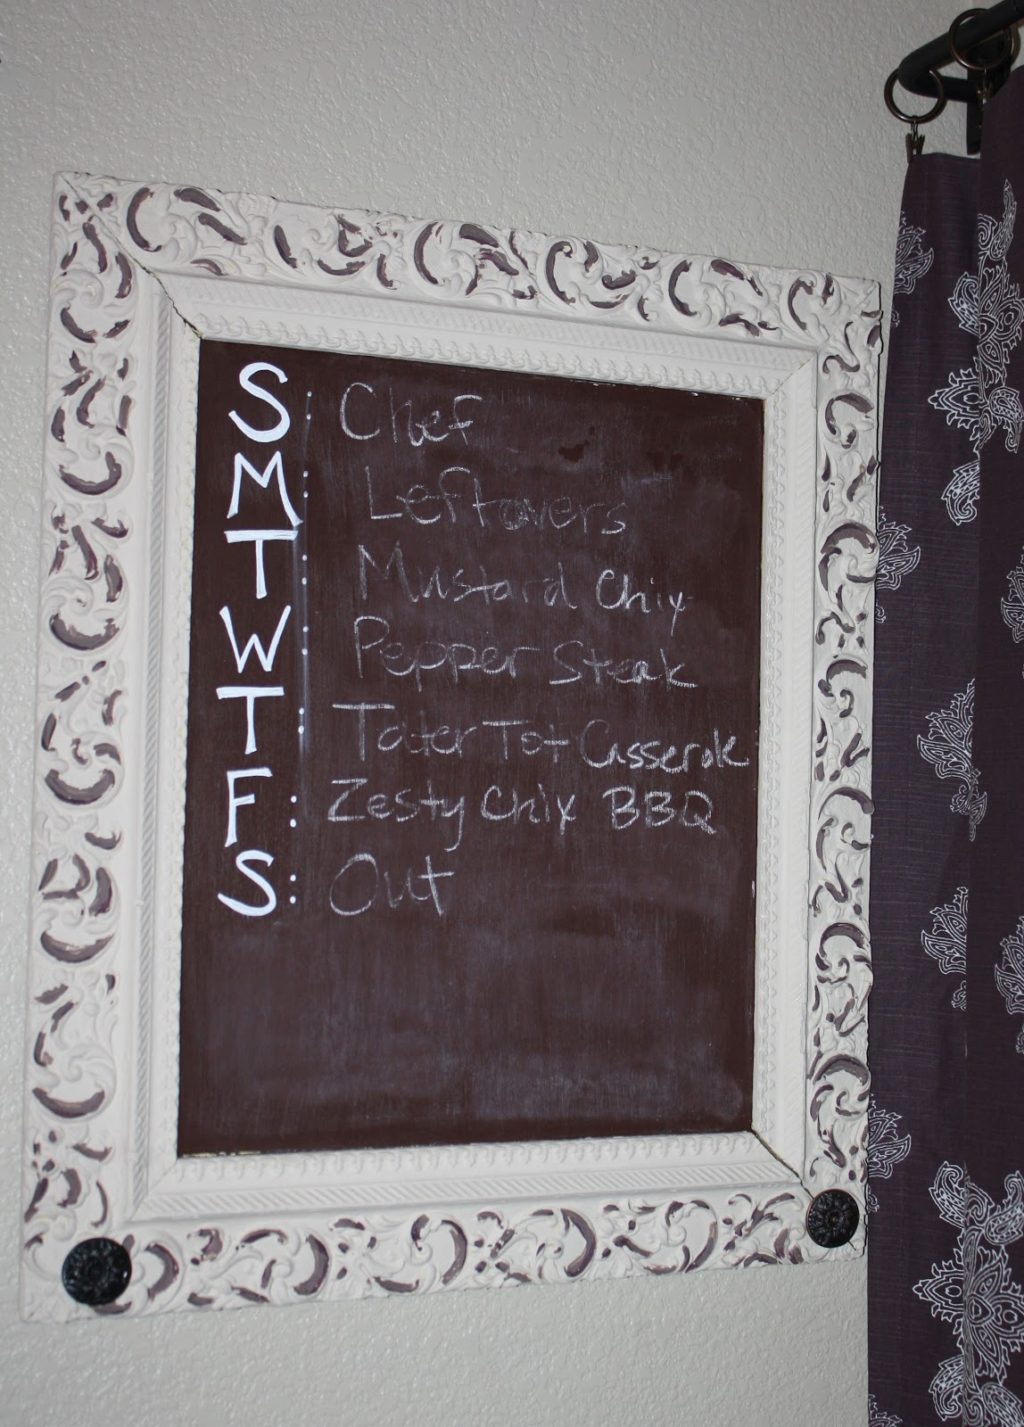 S: Chef
M: Leftovers
T: Mustard Chix
W: Pepper Steak
T: Tater Tot Casserole
F: Zesty Chix BBQ
S: Out